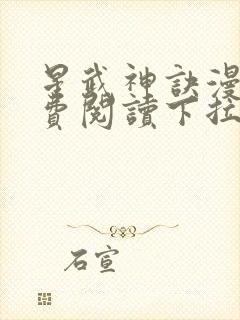 星武神訣漫
費閱讀下拉
石宣